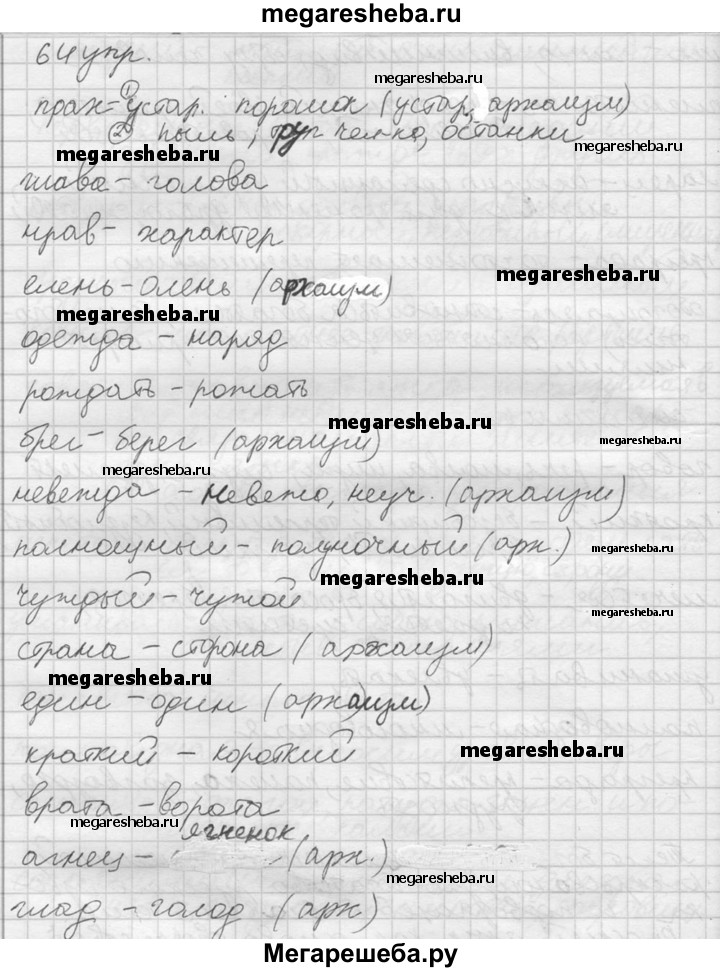 megaresheba.ru
64 упр.
megaresheba.ru
прах = ① устар. порошок (устар, архаизм)
② пыль, труп чел-ка, останки
megaresheba.ru
megaresheba.ru
глава - голова
нрав - характер
megaresheba.ru
елень - олень (архаизм)
megaresheba.ru
одежда - наряд
рождать - рожать
megaresheba.ru
брег - берег (архаизм)
megaresheba.ru
megaresheba.ru
невежда - невежа, неуч. (архаизм)
полнощный - полуночный (арх.)
megaresheba.ru
megaresheba.ru
чуждый - чужой
megaresheba.ru
страна - сторона (архаизм)
megaresheba.ru
един - один (архаизм)
краткий - короткий
megaresheba.ru
врата - ворота
megaresheba.ru
агнец - ягненок (арх.)
megaresheba.ru
глад - голод (арх)
Мегарешеба.ру